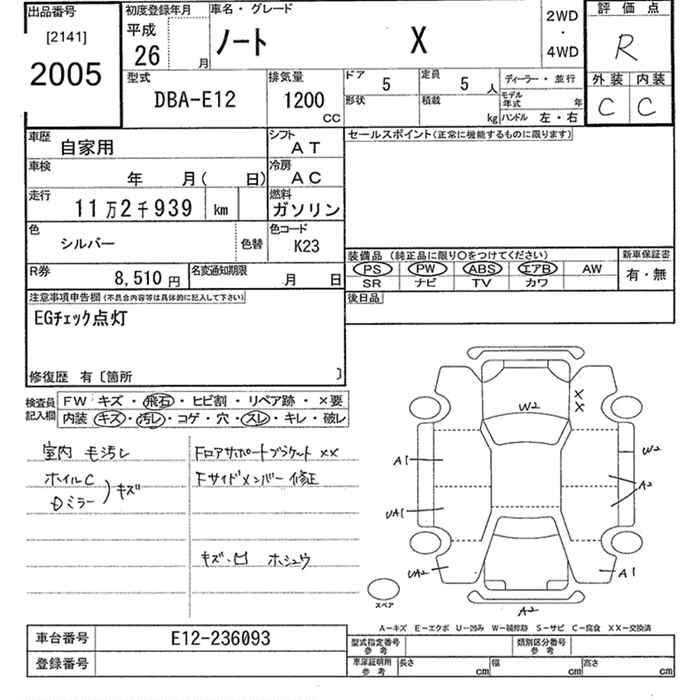 出品番号
[2141]
2005
初度登録年月
平成
26
月
車名・グレード
ノート X
2WD
・
4WD
評価点
R
外装 内装
C C
型式
DBA-E12
排気量
1200
CC
ドア 5
定員 5 人
形状
積載 kg
ディーラー・並行
モデル年式 年
ハンドル 左・右
車歴
自家用
シフト
AT
車検
年 月( 日)
冷房
AC
走行
11万2千939 km
燃料
ガソリン
色
シルバー
色替
色コード
K23
R券
8,510 円
名変通知期限
月 日
セールスポイント(正常に機能するものに限ります)
装備品(純正品に限り○をつけてください)
PS PW ABS エアB AW
SR ナビ TV カワ
新車保証書
有・無
後日品
注意事項申告欄(不具合内容等は具体的に記入して下さい)
EGチェック点灯
修復歴 有〔箇所 〕
検査員
記入欄
FW キズ・飛石・ヒビ割・リペア跡・×要
内装 キズ・汚レ・コゲ・穴・スレ・キレ・破レ
室内 毛汚レ
ホイルC
Dミラー
)キズ
Fロアサポートブラケット XX
Fサイドメンバー 修正
キズ・凹 ホシュウ
X
X
W2
W2
A1
A2
UA1
UA2
A1
A2
スペア
A−キズ E−エクボ U−凹み W−補修跡 S−サビ C−腐食 XX−交換済
車台番号
E12-236093
登録番号
型式指定番号
参考
類別区分番号
参考
車庫証明所
参考
長さ cm
幅 cm
高さ cm